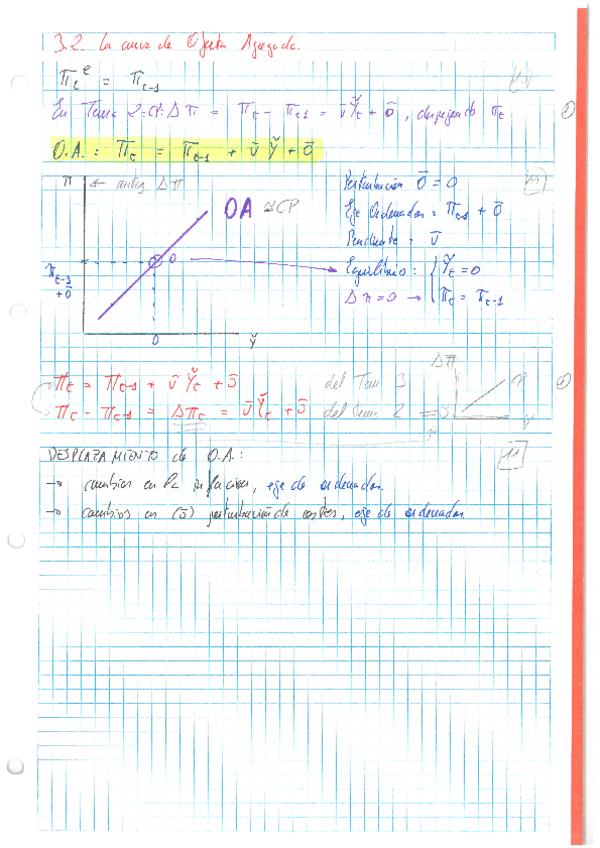 3.2. La curva de Oferta Agregada.
π_t^e = π_{t-1}
En Tema 2: CP: Δπ = π_t - π_{t-1} = v̄ Y̌_t + ō, despejando π_t
O.A.: π_t = π_{t-1} + v̄ Y̌ + ō
π ← antes Δπ
OA ≅ CP
π_{t-1} + ō
0
0
Y̌
Perturbación ō = 0
Eje Ordenadas: π_{t-1} + ō
Pendiente = v̄
Equilibrio: { Y̌_t = 0
Δπ = 0 → π_t = π_{t-1}
π_t = π_{t-1} + v̄ Y̌_t + ō del Tema 3
π_t - π_{t-1} = Δπ_t = v̄ Y̌_t + ō del Tema 2 ⇒
Δπ
CP
Y̌
DESPLAZAMIENTO de O.A.:
→ cambios en la inflación, eje de ordenadas.
→ cambios en (ō) perturbación de costes, eje de ordenadas.
11